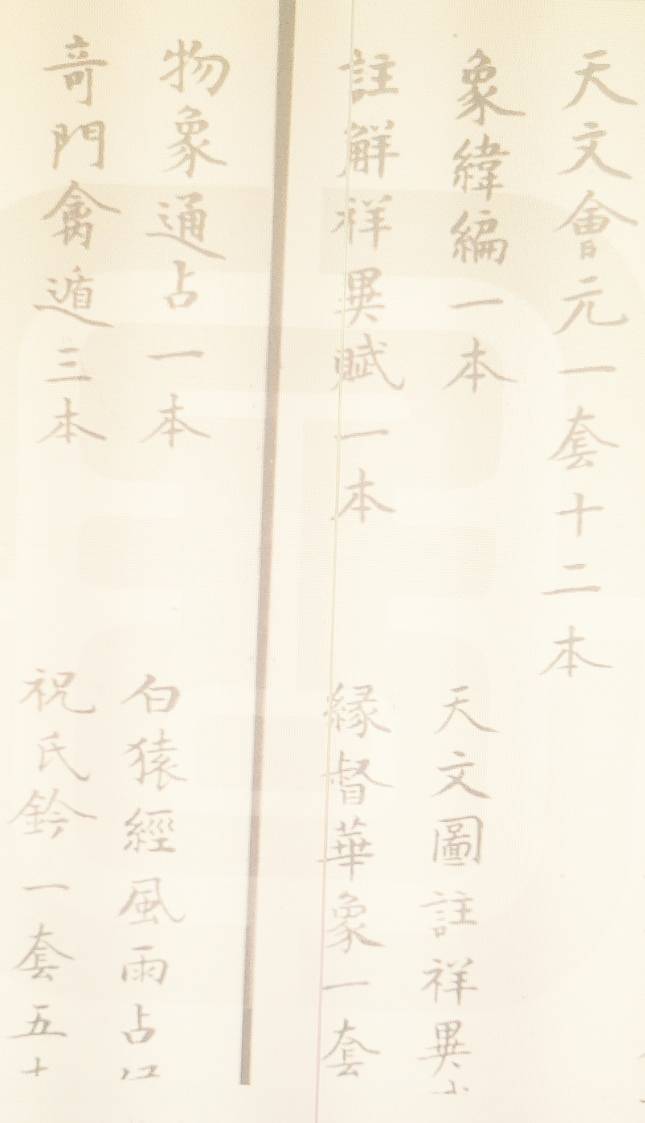 天文會元一套十二本
象緯編一本
天文圖註祥異
註解祥異賦一本
緣督華象一套
物象通占一本
白猿經風雨占
奇門禽遁三本
祝氏鈐一套五